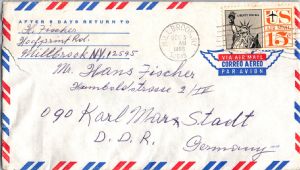 AFTER 5 DAYS RETURN TO
H. Fischer
Millbrook NY, 12545
LIBERTY FOR ALL
US
15¢
VIA AIR MAIL
CORREO AEREO
PAR AVION
Mr. Hans Fischer
Humboldtstrasse 2/II
090 Karl Marx Stadt
D.D.R.
Germany